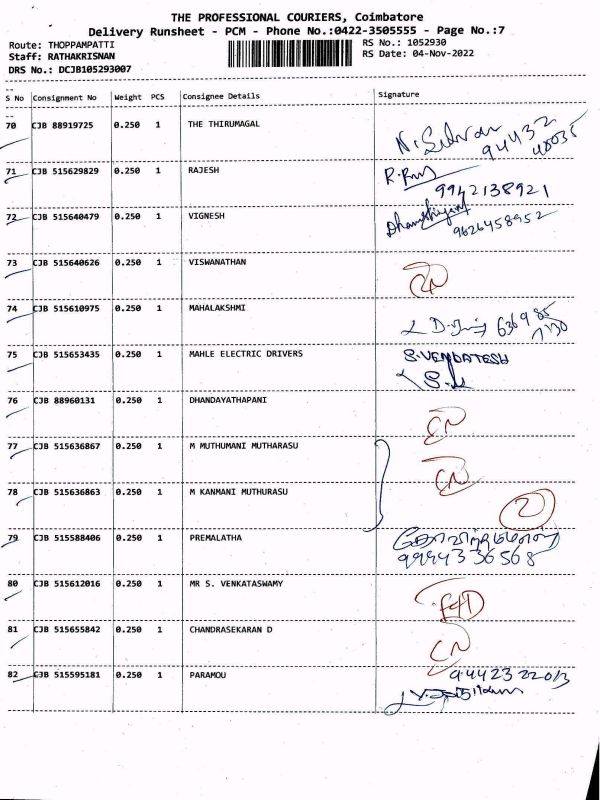 THE PROFESSIONAL COURIERS, Coimbatore
Delivery Runsheet - PCM - Phone No.:0422-3505555 - Page No.:7
Route: THOPPAMPATTI
RS No.: 1052930
Staff: RATHAKRISNAN
RS Date: 04-Nov-2022
DRS No.: DCJB105293007
S No Consignment No Weight PCS Consignee Details Signature
70 CJB 88919725 0.250 1 THE THIRUMAGAL
94432
71 CJB 515629829 0.250 1 RAJESH
9942138921
72 CJB 515640479 0.250 1 VIGNESH
9626458952
73 CJB 515640626 0.250 1 VISWANATHAN
74 CJB 515610975 0.250 1 MAHALAKSHMI
75 CJB 515653435 0.250 1 MAHLE ELECTRIC DRIVERS S.VENDATESH
76 CJB 88960131 0.250 1 DHANDAYATHAPANI CN
77 CJB 515636867 0.250 1 M MUTHUMANI MUTHARASU CN
78 CJB 515636863 0.250 1 M KANMANI MUTHURASU 2
79 CJB 515588406 0.250 1 PREMALATHA
9994336568
80 CJB 515612016 0.250 1 MR S. VENKATASWAMY
81 CJB 515655842 0.250 1 CHANDRASEKARAN D CN
82 CJB 515595181 0.250 1 PARAMOU